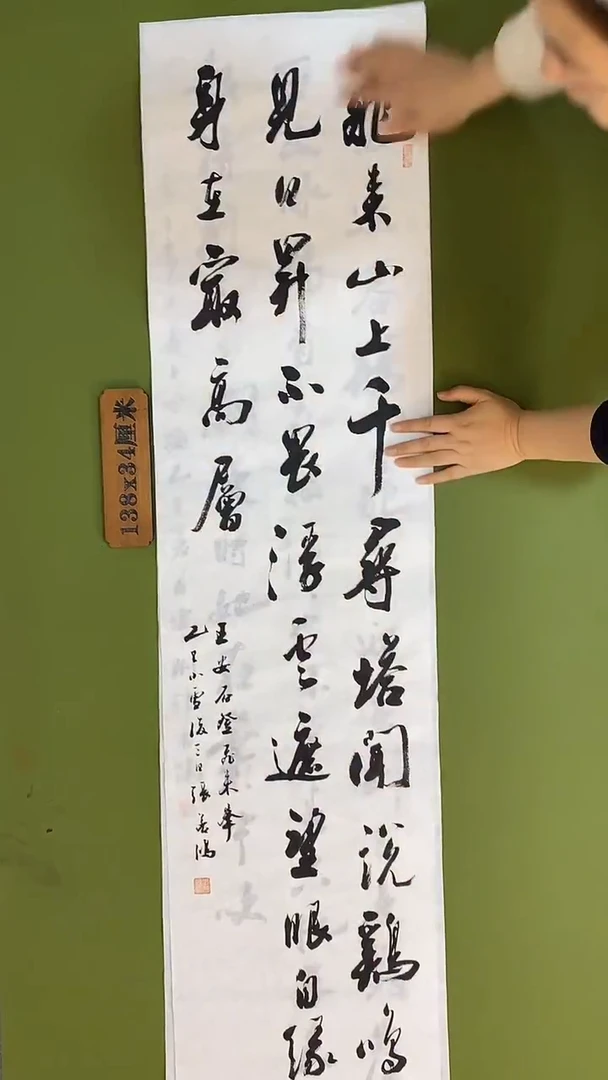 飛来山上千尋塔聞説鷄鳴
見日昇不畏浮雲遮望眼自緣
身在最高層
王安石登飛来峯
乙巳小雪後三日張
138x34厘米